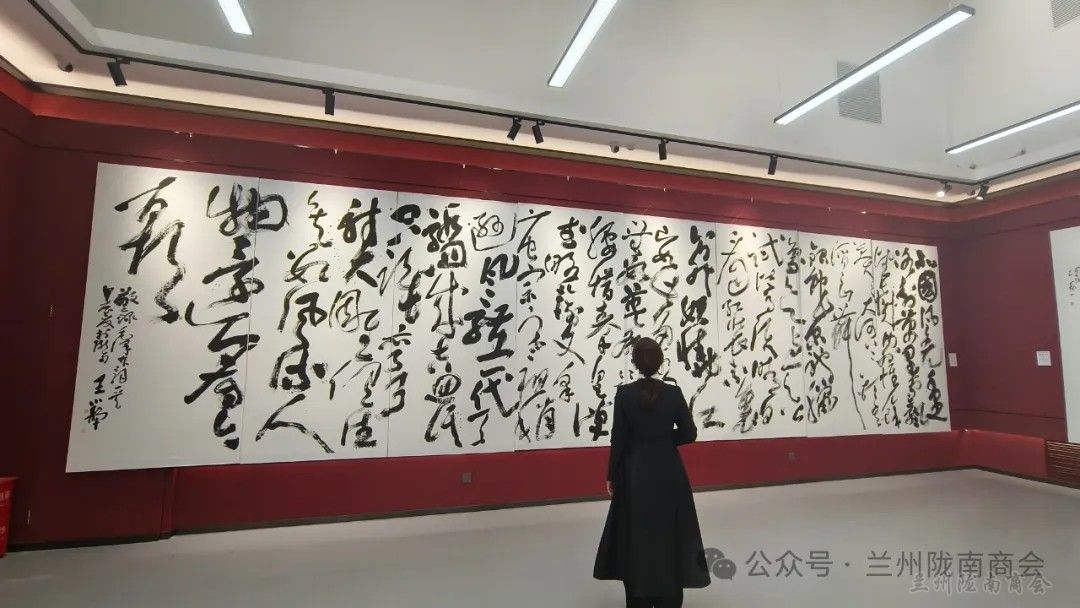 北国风光千里
冰封万里雪飘
望长城内外惟余莽
莽大河上下顿失
滔滔山舞
银蛇原驰蜡象
欲与天公
试比高须晴日
看红装素裹
分外妖娆江
山如此多娇引
无数英雄竞折
腰惜秦皇汉
武略输文采
唐宗宋祖稍
逊风骚一代天
骄成吉思汗
只识弯弓
射大雕俱往
矣数风流人
物还看今
朝
公众号·兰州陇南商会
兰州陇南商会